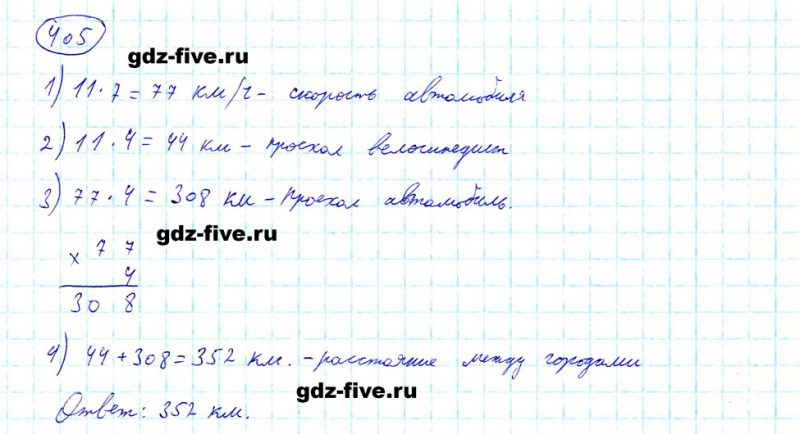 405
gdz-five.ru
1) 11 · 7 = 77 км/ч - скорость автомобиля
2) 11 · 4 = 44 км - проехал велосипедист
3) 77 · 4 = 308 км - проехал автомобиль.
gdz-five.ru
x 77
4
308
4) 44 + 308 = 352 км. - расстояние между городами
gdz-five.ru
Ответ: 352 км.